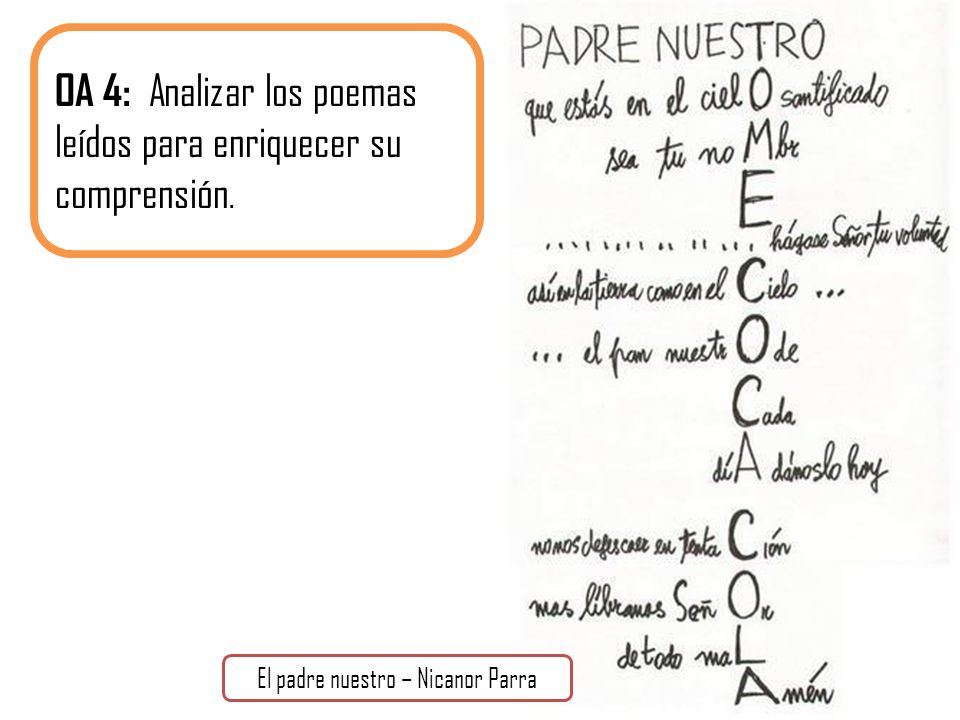 OA 4: Analizar los poemas
leídos para enriquecer su
comprensión.
PADRE NUESTRO
que estás en el cielO santificado
sea tu no Mbr
E
................ hágase Señor tu voluntad
así en la tierra como en el Cielo ...
... el pan nuestrO de
Cada
díA dánoslo hoy
no nos dejes caer en tentaCión
mas líbranos SeñOr
de todo maL
Amén
El padre nuestro – Nicanor Parra